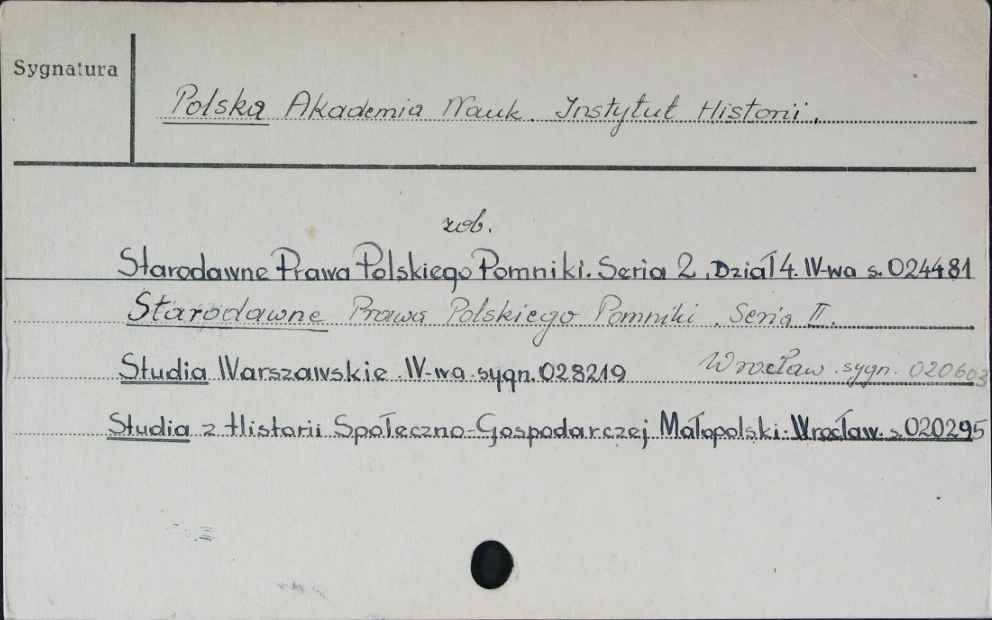 Sygnatura
Polska Akademia Nauk. Instytut Historii.
zob.
Starodawne Prawa Polskiego Pomniki. Seria 2, Dział 4. W-wa s. 024481
Starodawne Prawa Polskiego Pomniki. Seria II.
Wrocław. sygn. 020603
Studia Warszawskie. W-wa. sygn. 028219
Studia z Historii Społeczno-Gospodarczej Małopolski. Wrocław. s. 020295